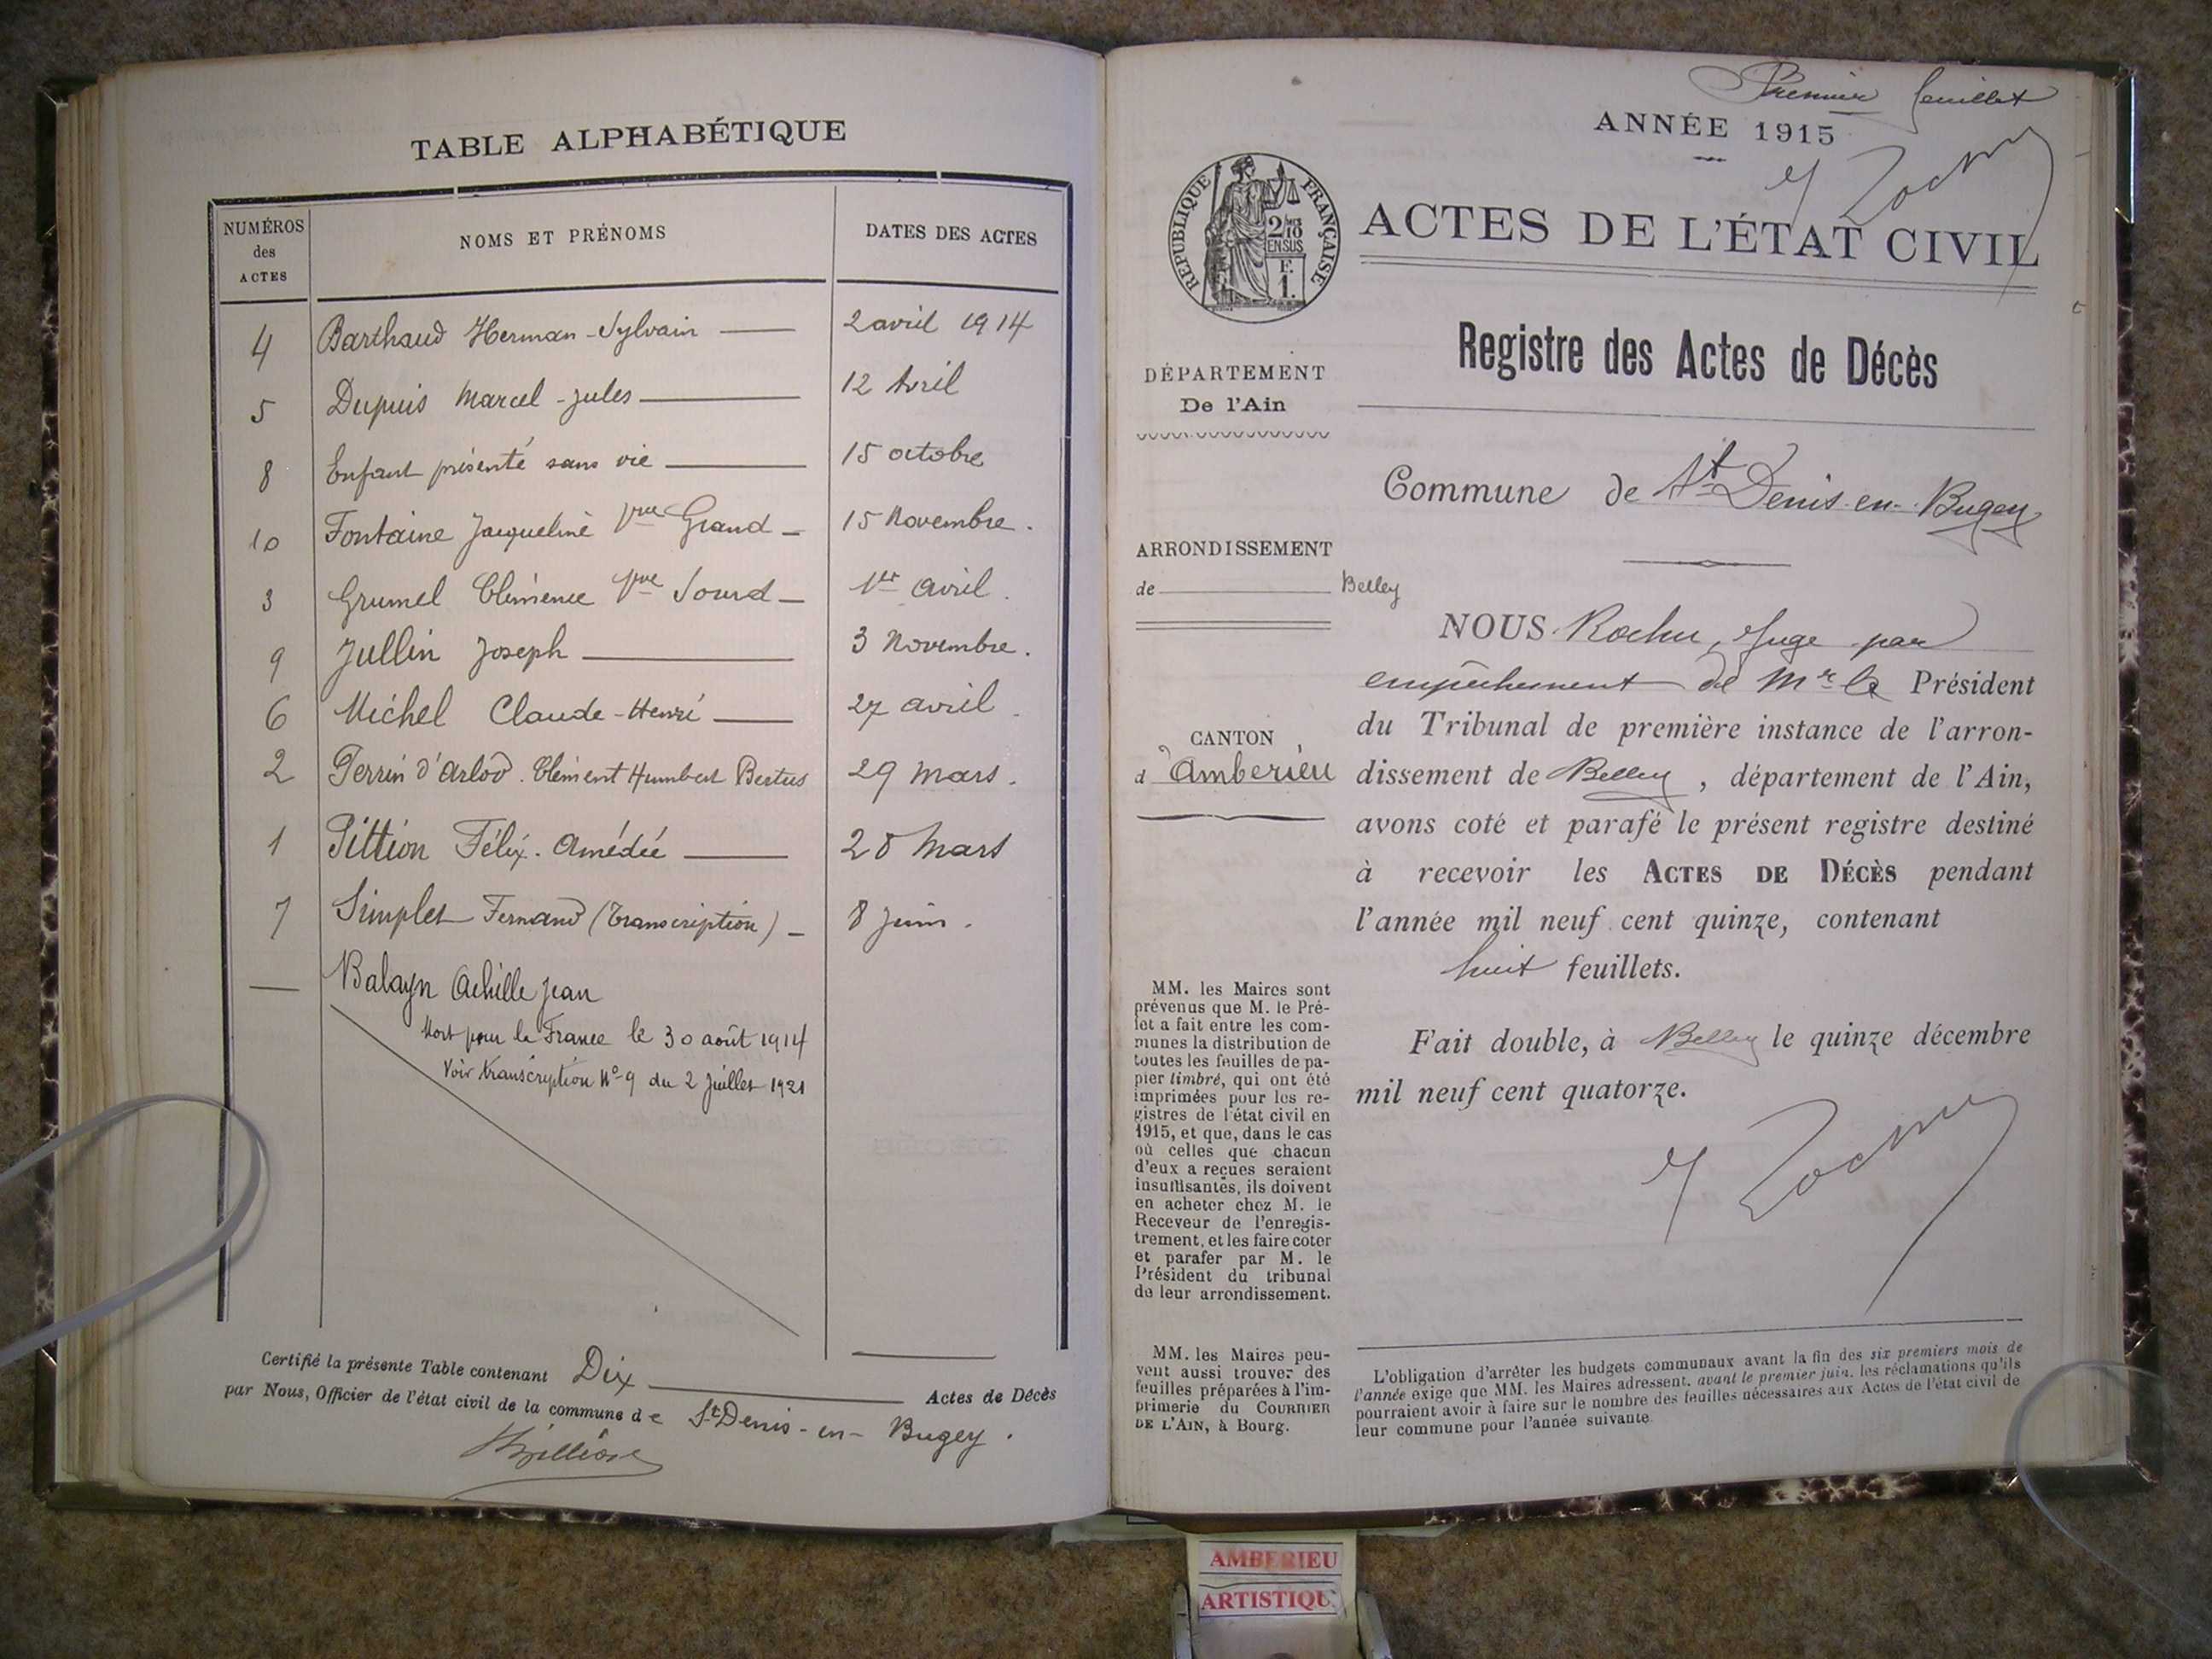 TABLE ALPHABÉTIQUE
NUMÉROS des ACTES NOMS ET PRÉNOMS DATES DES ACTES
4 Barthaud Herman-Sylvain 2 avril 1914
5 Dupuis Marcel-Jules 12 Avril
8 Enfant présenté sans vie 15 octobre
10 Fontaine Jacqueline Vve Grand 15 Novembre.
3 Grumel Clémence Vve Sourd 1er avril.
9 Jullin Joseph 3 Novembre.
6 Michel Claude-Henri 27 avril.
2 Perrin d'Arlod. Clément Humbert 29 mars.
1 Pittion Félix. Amédée 28 Mars
7 Simplet Fernand (Transcription) 8 Juin.
— Balayn Achille Jean
Mort pour la France le 30 août 1914
Voir transcription No 9 du 2 Juillet 1921
Certifié la présente Table contenant Dix Actes de Décès
par Nous, Officier de l'état civil de la commune de St Denis-en-Bugey.
Premier feuillet
ANNÉE 1915
RÉPUBLIQUE FRANÇAISE
2/10
EN SUS
F.
1.
ACTES DE L'ÉTAT CIVIL
Registre des Actes de Décès
DÉPARTEMENT
De l'Ain
Commune de St Denis-en-Bugey
ARRONDISSEMENT
de Belley
CANTON
d'Amberieu
NOUS Rochu, Juge par
empêchement de Mr le Président
du Tribunal de première instance de l'arron-
dissement de Belley, département de l'Ain,
avons coté et parafé le présent registre destiné
à recevoir les ACTES DE DÉCÈS pendant
l'année mil neuf cent quinze, contenant
huit feuillets.
Fait double, à Belley le quinze décembre
mil neuf cent quatorze.
MM. les Maires sont
prévenus que M. le Pré-
fet a fait entre les com-
munes la distribution de
toutes les feuilles de pa-
pier timbré, qui ont été
imprimées pour les re-
gistres de l'état civil en
1915, et que, dans le cas
où celles que chacun
d'eux a reçues seraient
insuffisantes, ils doivent
en acheter chez M. le
Receveur de l'enregis-
trement, et les faire coter
et parafer par M. le
Président du tribunal
de leur arrondissement.
MM. les Maires peu-
vent aussi trouver des
feuilles préparées à l'im-
primerie du COURRIER
DE L'AIN, à Bourg.
L'obligation d'arrêter les budgets communaux avant la fin des six premiers mois de
l'année exige que MM. les Maires adressent, avant le premier juin, les réclamations qu'ils
pourraient avoir à faire sur le nombre des feuilles nécessaires aux Actes de l'état civil de
leur commune pour l'année suivante.
AMBERIEU
ARTISTIQU